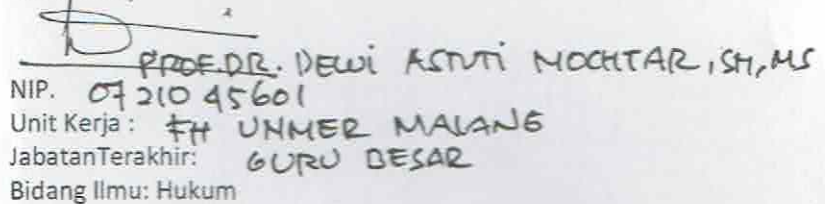 PROF.DR. DEWI ASTUTI MOCHTAR, SH, MS
NIP. 07 210 45601
Unit Kerja : FH UNMER MALANG
JabatanTerakhir: GURU BESAR
Bidang Ilmu: Hukum